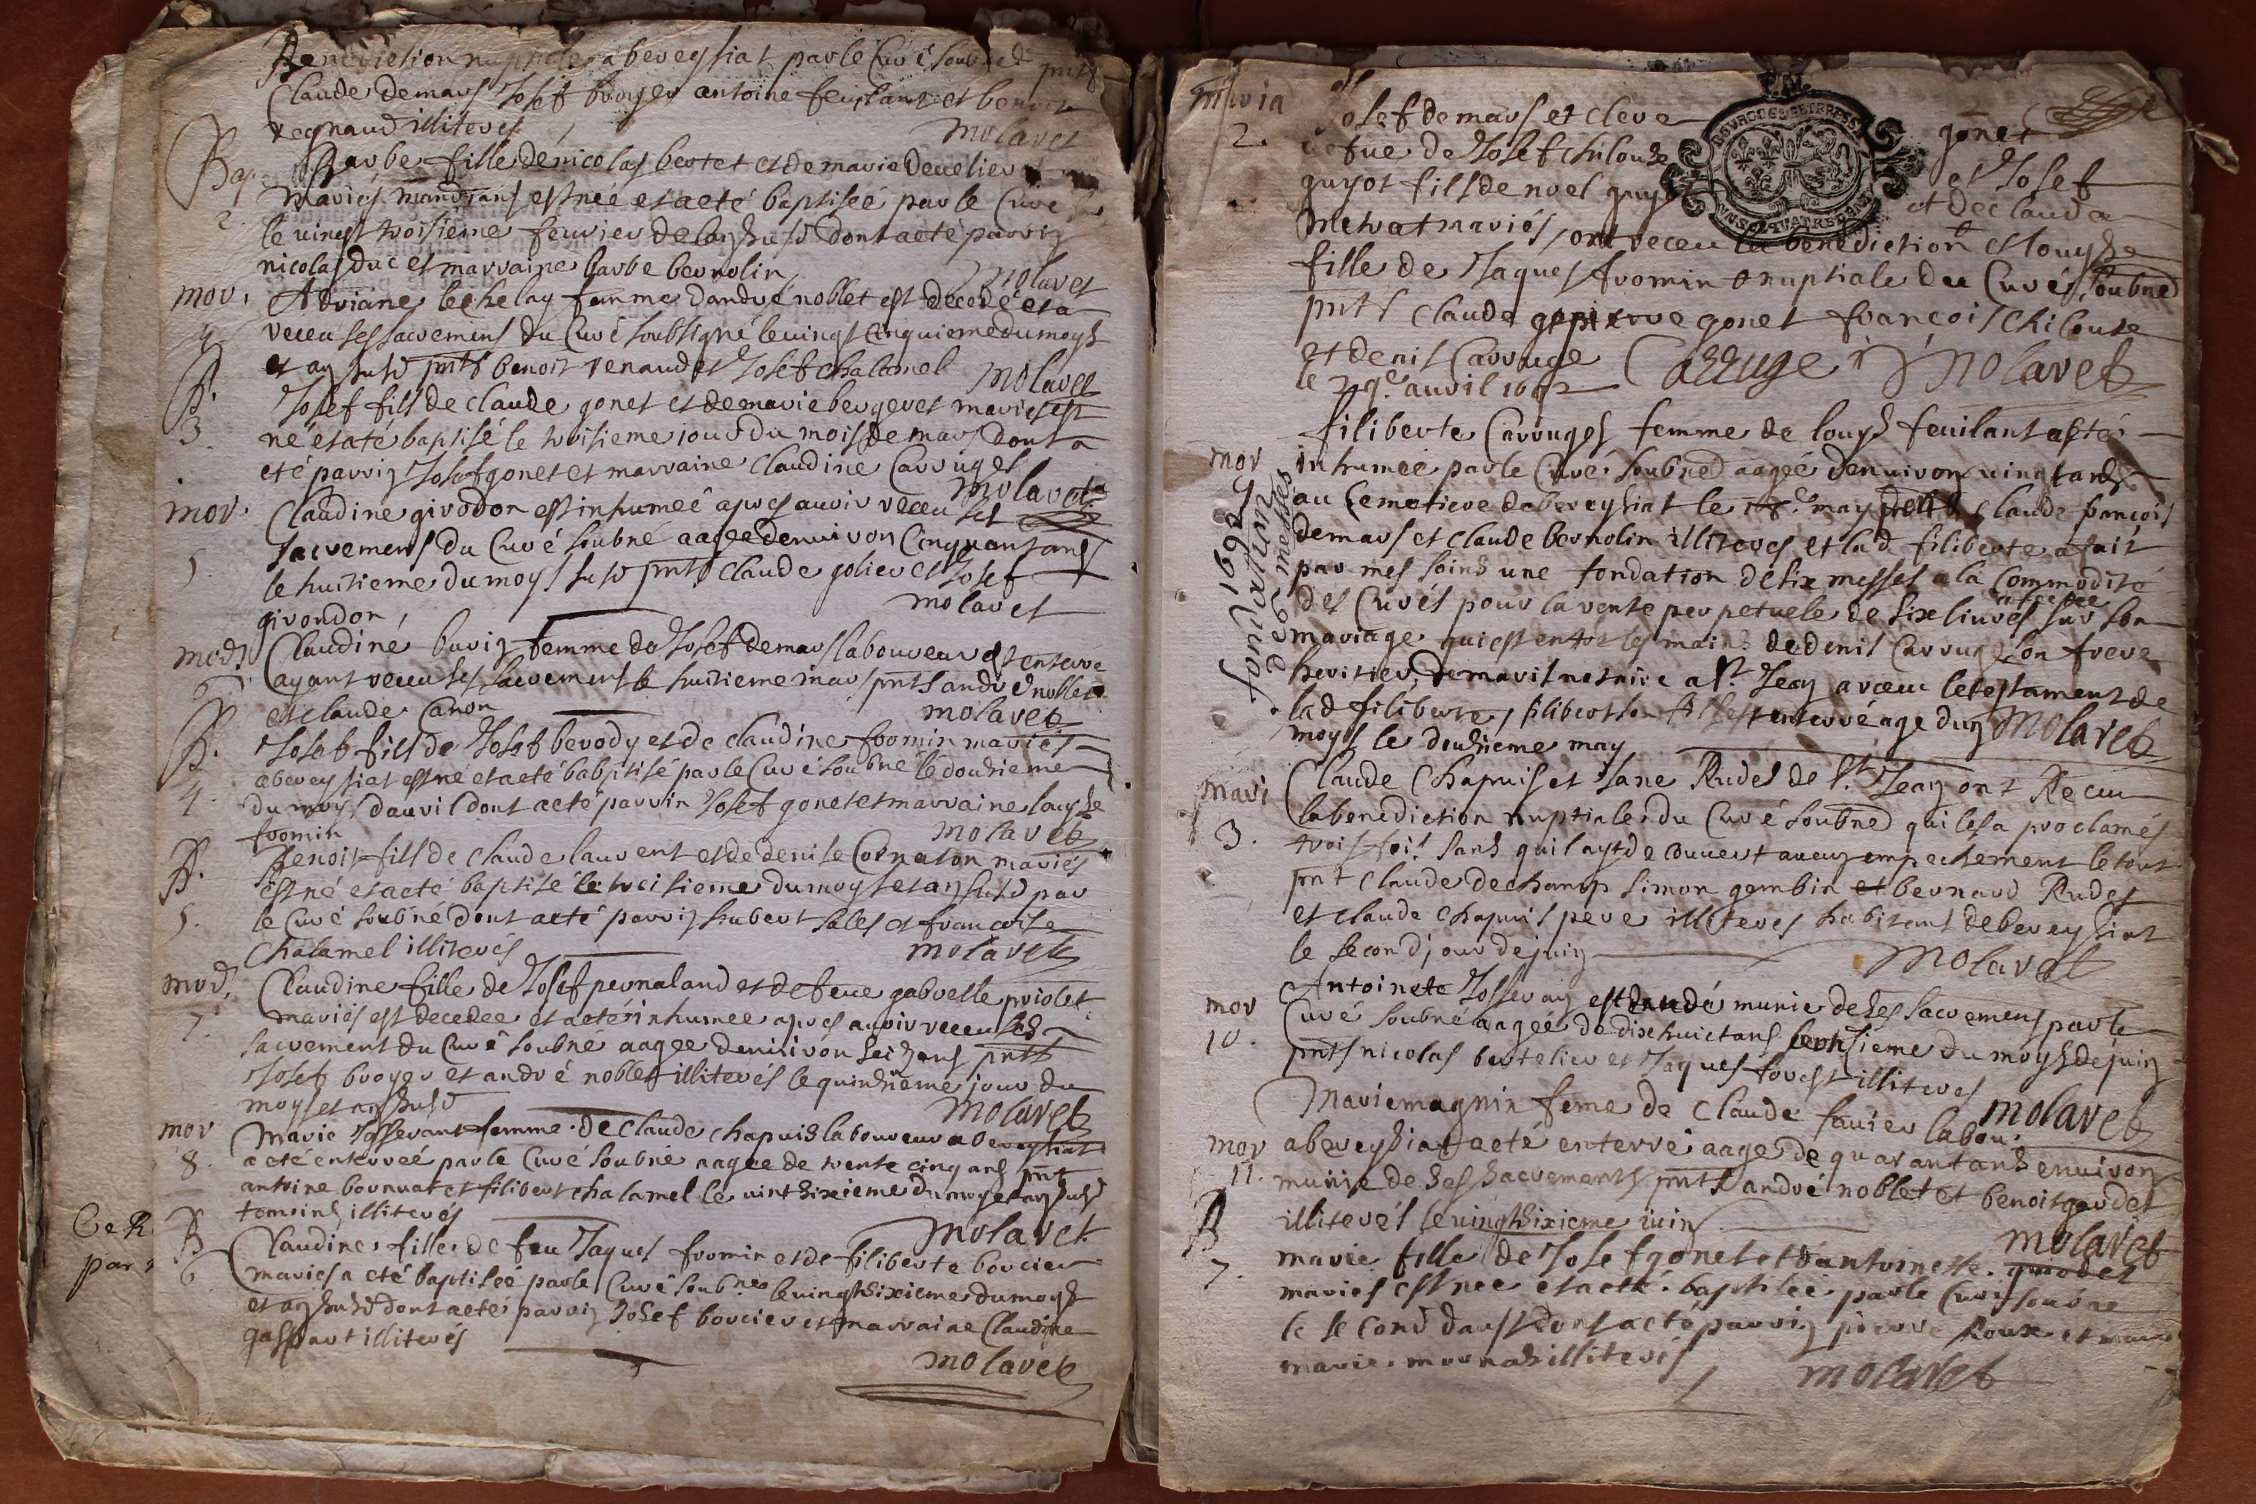 Benediction nuptiale a bereysiat par le Curé soubned pnts
Claude demars Josef broyer antoine feuilant et benoit
regnaud illiterés
molaret
Bap.
2.
Barbe fille de nicolas bertet et de marie
mariés est née et a eté baptisée par le Curé
le vingt troisieme feuvrier de lan susd dont a eté parrin
nicolas duc et marraine barbe bernolin
molaret
mor.
4
Adriane lechelay femme dandré noblet est decedé et a
receu ses sacremens du Curé soubsigné le vingt cinquieme du moys
et an susd pnts benoit renaud et Josef chalamel
molaret
B.
3.
Josef fils de claude gonet et de marie bergeret mariés est
né et a té baptisé le troisieme jour du mois de mars dont a
eté parrin Josef gonet et marraine Claudine Carruges
molaret
mor.
5
Claudine girodon est inhumeé apres avoir receu ses
sacremens du Curé soubné aagee denviron Cinquant ans
le huitieme du moys susd pnts claude golier et Josef
girondon
molaret
mort
6
Claudine burin femme de Josef demars laboureur est enterré
ayant receu ses sacremens le huitieme mars pnts andré noblet
et claude Canon
molaret
B.
4.
Josef fils de Josef berody et de claudine fromin mariés
a bereysiat est né et a eté babptisé par le Curé soubné le douzieme
du moys davril dont a eté parrin Josef gonet et marraine louyse
fromin
molaret
B.
5.
Benoit fils de claude laurent et de denise Cornaton mariés
est né et a eté baptisé le troisieme du moys et an susd par
le Curé soubné dont a eté parrin hubert sales et francoise
Chalamel illiterés
molaret
mord.
7.
Claudine fille de Josef pernaland et de feue gabrelle priolet
mariés est decedee et a eté inhumee apres avoir receu ses
sacrement du Curé soubne aagee denviron seize ans pnts
Josef broyer et andré noblet illiterés le quinzieme jour du
moys et an susd
molaret
mor
8.
Marie Josserant femme de Claude chapuis laboureur a bereysiat
a eté enterreé par le Curé soubné aagee de trente cinq ans pnt
antoine bornuat et filibert chalamel le vint sixieme du moys et an susd
temoins illiterés
molaret
Ce R
par
B
6
Claudine fille de feu Jaques fromin et de filiberte borcier
mariés a eté baptiseé par le Curé soubne le vingt sixieme du moys
et an susd dont a eté parrin Josef borcier et marraine Claudine
gaspart illiterés
molaret
maria
2.
Josef demars et cleve
gonet
vefue de Josef chilouse
et Josef
guyot fils de noel guyot
et de clauda
metrat mariés ont receu la benediction et louyse
fille de Jaques fromin nuptiale du Curé soubned
pnts Claude pierre gonet françois chiloute
et denis Carruge
le 29e. avril 1692
Carruge
molaret
mor
9
fondation 1692
de 6 messes
filiberte Carruges femme de louys feuilant a eté
inhumeé par le Curé soubned aageé denviron vingt ans
au Cemetiere de bereysiat le may pnts Claude françois
demars et claude bernolin illiterés et lad filiberte a fait
par mes soins une fondation de six messes a la Commodité
des Curés pour la rente perpetuele de six livres sur son
mariage qui est entre les mains de denis Carruge son frere
heritier, demaris notaire a St. Jean a receu le testament de
lad filiberte, filibert son fils est enterré agé dun
moys le douzieme may
molaret
mari
3.
Claude Chapuis et Jane Rudet de St. Jean ont Receu
la benediction nuptiale du Curé soubned qui les a proclamés
trois fois sans quil ayt decouvert aucun empechement le tout
pnt claude dechamp simon gembin et bernard Rudet
et claude Chapuis pere illiteres habitans de bereysiat
le second jour de juin
molaret
mor
10.
Antoinete Josseran est decedé munie de ses sacremens par le
Curé soubné aageé de dixhuict ans le onzieme du moys de juin
pnts nicolas bertelier et Jaques forest illiteres
molaret
mor
11.
Marie magnin feme de Claude favier labour
a bereysiat a eté enterré aage de quarant ans environ
munie de ses sacrements pnts andré noblet et benoit gaudet
illiterés le vingt sixieme juin
molaret
B
7.
marie fille de Josef gonet et dantoinette
mariés est nee et a eté baptisée par le Curé soubne
le second daust dont a eté parrin pierre Roux et
marie illiterés
molaret